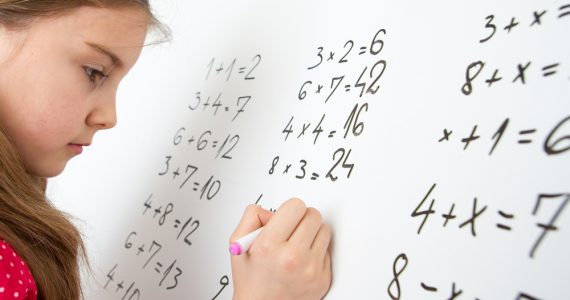 1+1=2
3+4=7
6+6=12
3+7=10
4+8=12
6+7=13
3×2=6
6×7=42
4×4=16
8×3=24
3+x
8+x=
x+1=6
4+x=7
8-x=7